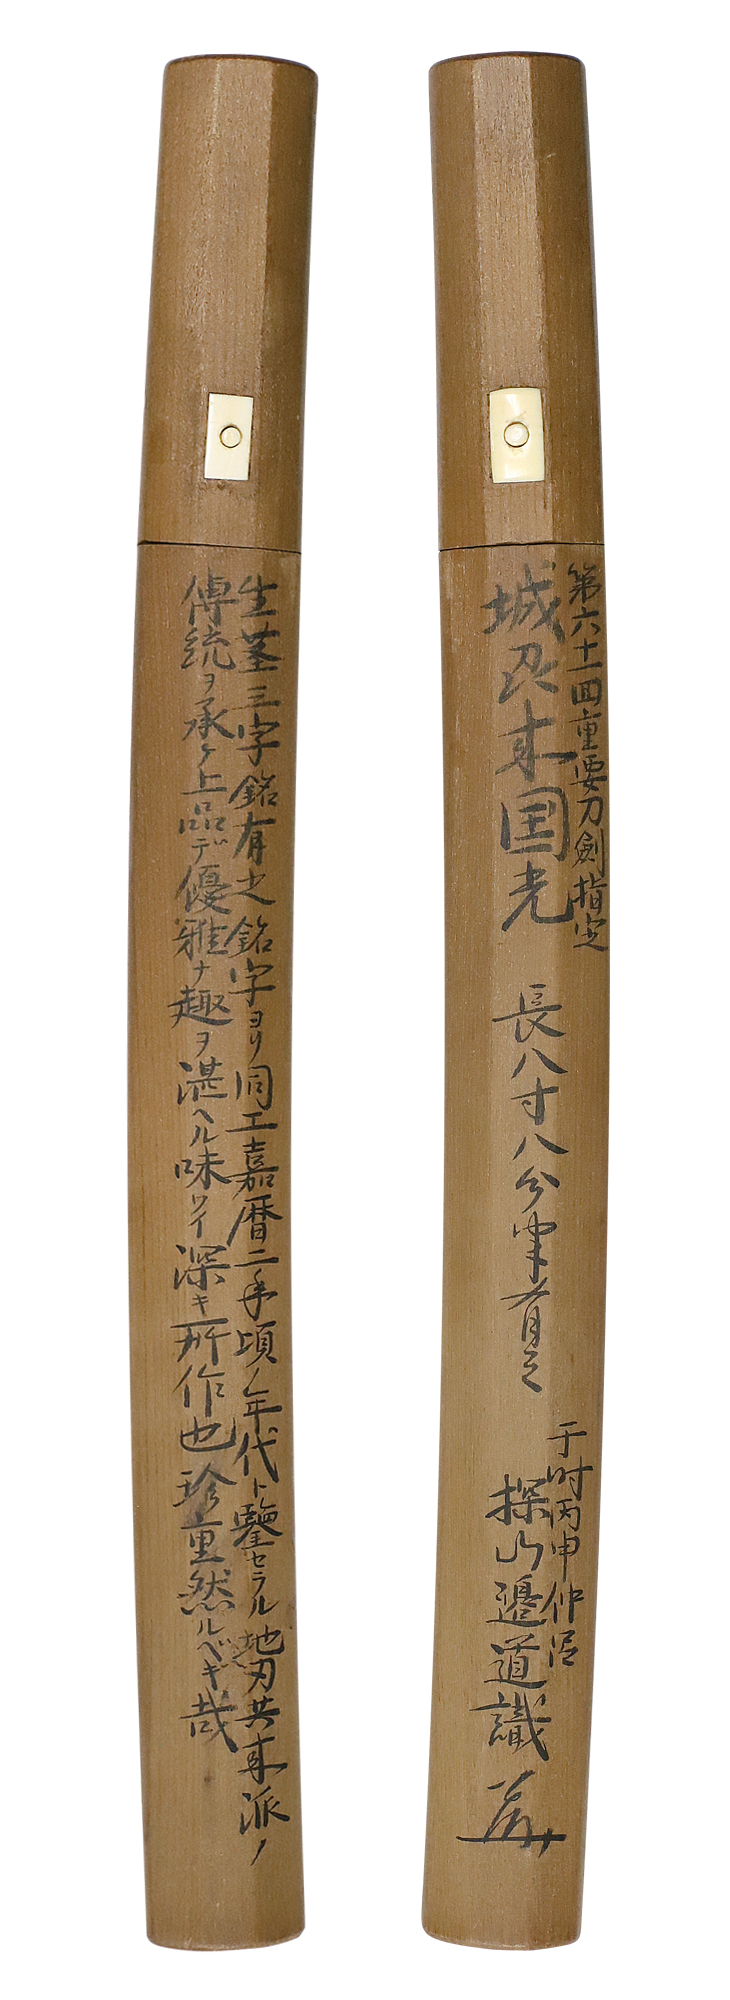 第六十一回重要刀劍指定
城刕来国光 長八寸八分半有之
于时丙申仲
探山邉道識
生茎三字銘有之銘字ヨリ同工嘉暦二年頃ノ年代ト鑒セラル地刃共来派ノ
傳統ヲ承ケ上品デ優雅ナ趣ヲ湛ヘル味ワイ深キ所作也珍重然ルベキ哉